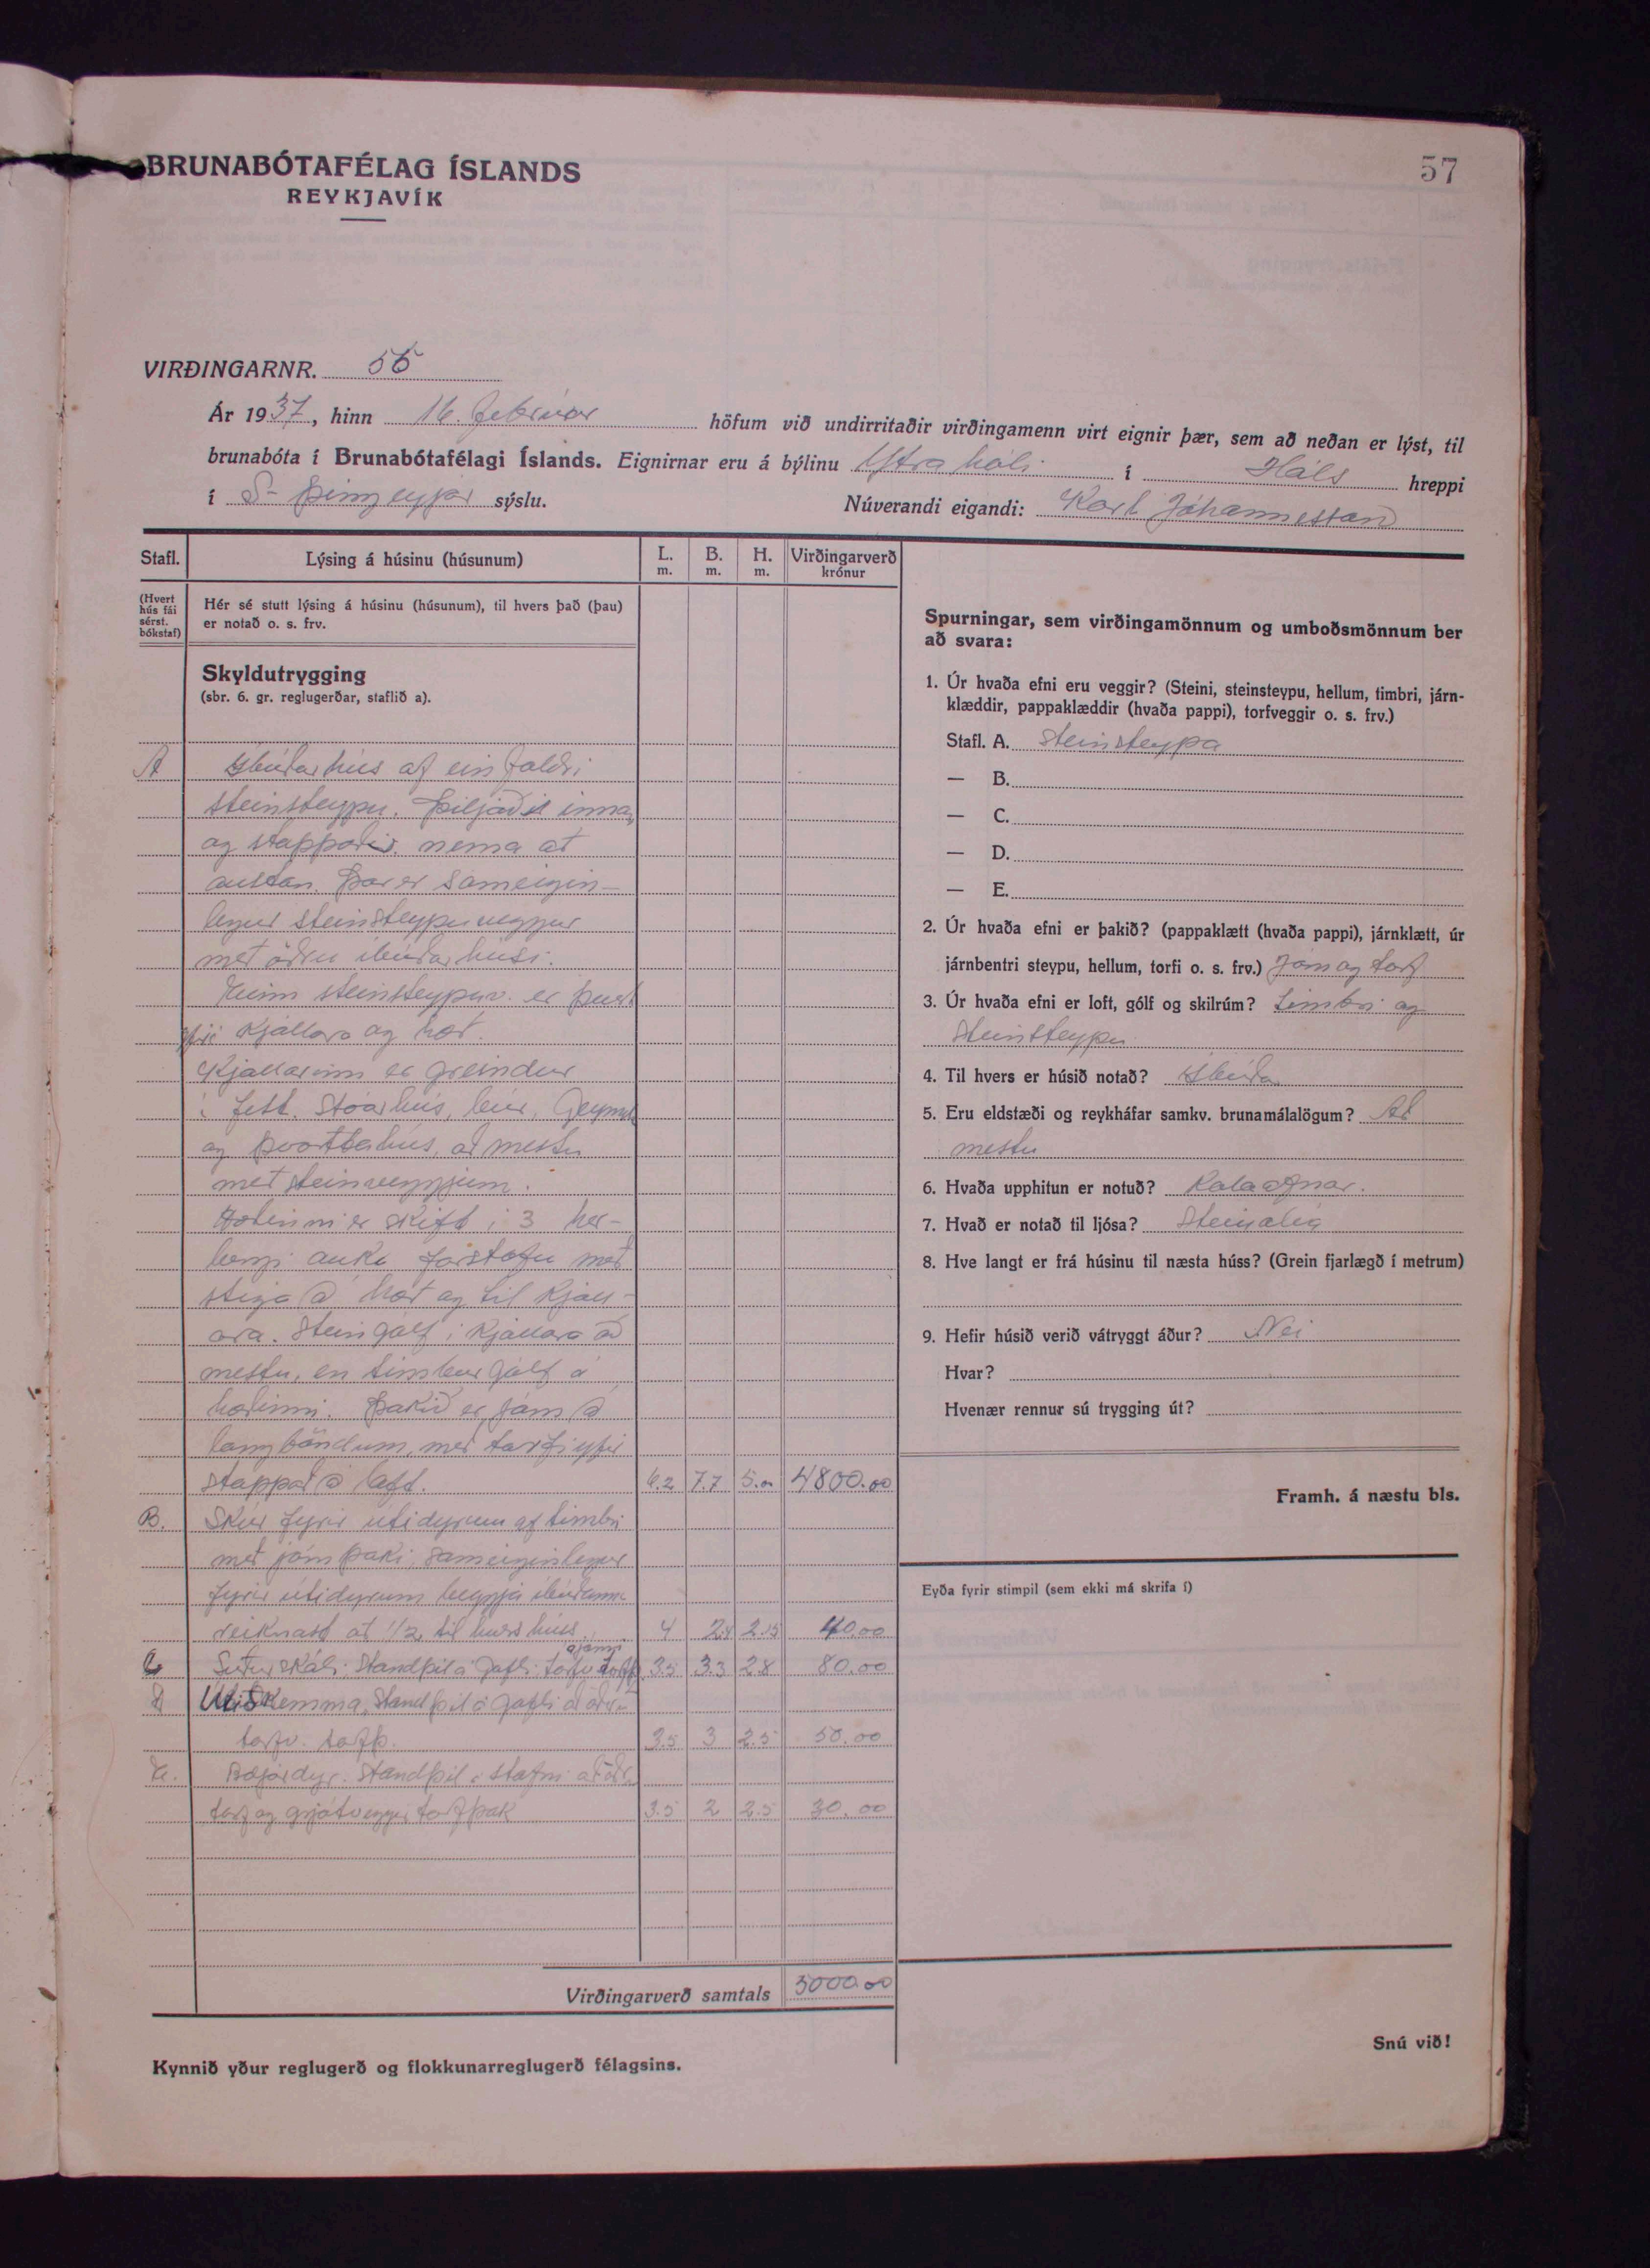 57
BRUNABÓTAFÉLAG ÍSLANDS
REYKJAVÍK
VIRÐINGARNR. 55
Ár 1937, hinn 16. febrúar höfum við undirritaðir virðingamenn virt eignir þær, sem að neðan er lýst, til
brunabóta í Brunabótafélagi Íslands. Eignirnar eru á býlinu Ytra hóli í Háls hreppi
í S-Þingeyjar sýslu. Núverandi eigandi: Karl Jóhannesson
Stafl. Lýsing á húsinu (húsunum) L. m. B. m. H. m. Virðingarverð krónur
(Hvert hús fái sérst. bókstaf)
Hér sé stutt lýsing á húsinu (húsunum), til hvers það (þau)
er notað o. s. frv.
Skyldutrygging
(sbr. 6. gr. reglugerðar, staflið a).
A Íbúðarhús af einfaldri
steinsteypu. Þiljað innan
og stoppað nema að
austan. Þar er sameigin-
legur steinsteypuveggur
með öðru íbúðarhúsi.
steinsteypuv. er
yfir kjallara og hæð.
Kjallarinn er greindur
í eldhús, búr, geymslu
og þvottahús, að mestu
með steinveggjum.
Hæðinni er skift í 3 her-
bergi auk forstofu með
stiga á hæð og til kjall-
ara. Steingólf í kjallara að
mestu, en timburgólf á
hæðinni. Þakið er járn á
langböndum, með torfi yfir
stoppað á loft. 6.2 7.7 5.00 4800.00
B. Skúr fyrir útidyrum af timbri
með járnþaki, sameiginlegur
fyrir útidyrum beggja íbúðanna
reiknast að 1/2 til hvers húss. 4 2.8 2.15 40.00
C Suðurskáli. Standþil á gafli. 3.5 3.3 2.8 80.00
D Útiskemma, Standþil á gafli að öðru
torfv. torfþ. 3.5 3 2.5 50.00
E. Bæjardyr. Standþil á stafni að öðru
torf og grjótveggir torfþak 3.5 2 2.5 30.00
Virðingarverð samtals 5000.00
Kynnið yður reglugerð og flokkunarreglugerð félagsins.
Spurningar, sem virðingamönnum og umboðsmönnum ber
að svara:
1. Úr hvaða efni eru veggir? (Steini, steinsteypu, hellum, timbri, járn-
klæddir, pappaklæddir (hvaða pappi), torfveggir o. s. frv.)
Stafl. A. Steinsteypa
— B.
— C.
— D.
— E.
2. Úr hvaða efni er þakið? (pappaklætt (hvaða pappi), járnklætt, úr
járnbentri steypu, hellum, torfi o. s. frv.) Járn og torf
3. Úr hvaða efni er loft, gólf og skilrúm? Timbri og
steinsteypu
4. Til hvers er húsið notað? Íbúðar
5. Eru eldstæði og reykháfar samkv. brunamálalögum? Að
mestu
6. Hvaða upphitun er notuð? Kolaofnar.
7. Hvað er notað til ljósa? Steinolía
8. Hve langt er frá húsinu til næsta húss? (Grein fjarlægð í metrum)
9. Hefir húsið verið vátryggt áður? Nei
Hvar?
Hvenær rennur sú trygging út?
Framh. á næstu bls.
Eyða fyrir stimpil (sem ekki má skrifa í)
Snú við!